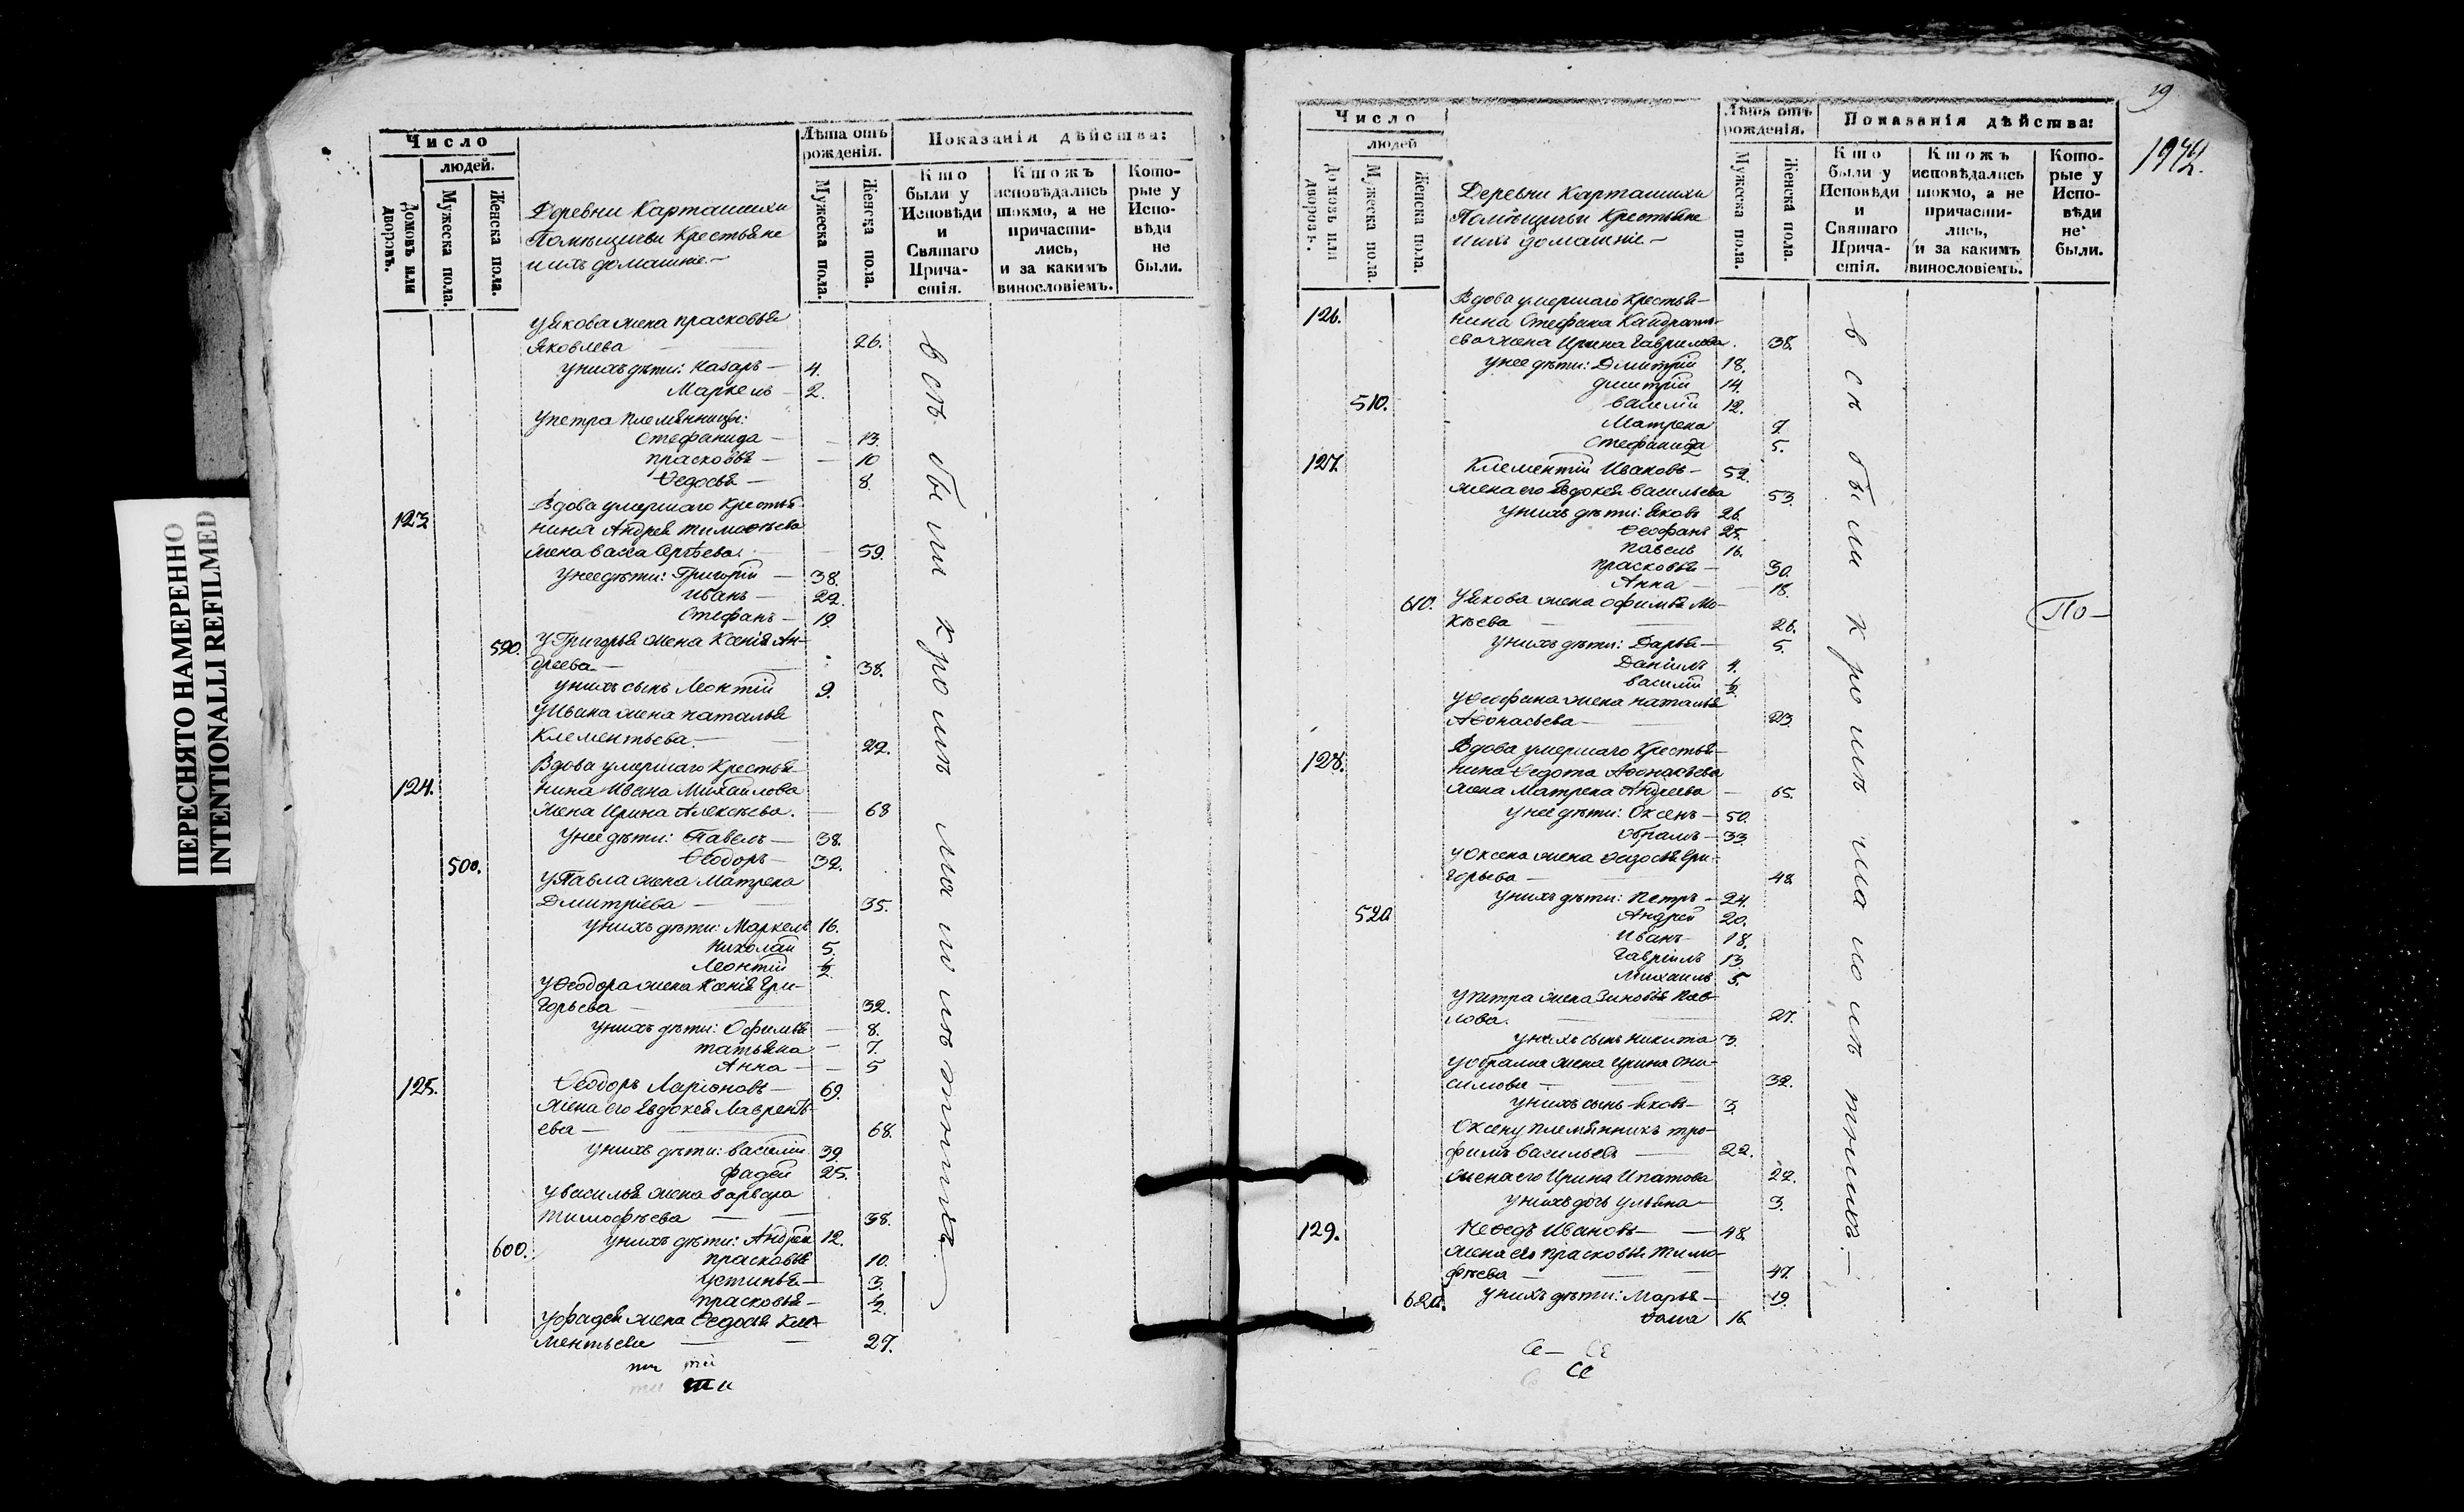 ПЕРЕСНЯТО НАМЕРЕННО
INTENTIONALLI REFILMED
Число
людей.
Домовъ или дворовъ.
Мужеска пола.
Женска пола.
Деревни Карташихи
Помѣщичьи Крестьяне
и ихъ домашніе. –
Лѣта отъ рожденія.
Мужеска пола.
Женска пола.
Показанія дѣйства:
Кто были у Исповѣди и Святаго Причастія.
Ктожъ исповѣдались токмо, а не причастились, и за какимъ винословіемъ.
Которые у Исповѣди не были.
У Якова жена Прасковья
Яковлева — 26.
У нихъ дѣти: Назаръ — 4.
Маркелъ — 2.
У Петра племянницы:
Стефанида — 13.
Прасковья — 10
Ѳедосья — 8.
Вдова умершаго Крестья-
123. нина Андрея Тимоѳѣева
жена Васса Сергѣева. 59.
У нее дѣти: Григорій — 38.
Иванъ — 22.
Стефанъ — 19.
590. У Григорья жена Ксенія Ан-
дреева — 38.
У нихъ сынъ Леонтій 9.
У Ивана жена Наталья
Клементьева. — 22.
Вдова умершаго Крестья-
124. нина Ивана Михайлова
жена Ирина Алексѣева. — 68
У нее дѣти: Павелъ — 38.
500. Ѳеодоръ — 32.
У Павла жена Матрена
Дмитріева — 35.
У нихъ дѣти: Маркелъ 16.
Николай 5.
Леонтій ½
У Ѳеодора жена Ксенія Гри-
горьева — 32.
У нихъ дѣти: Офимья — 8.
Татьяна — 7.
Анна — 5
125. Ѳеодоръ Ларіоновъ — 69.
жена его Евдокея Лаврентѣ-
ева — 68.
У нихъ дѣти: Василій 39.
Фадей 25.
У Василья жена Варвара
Тимофѣева — 38.
600. У нихъ дѣти: Андрей 12.
Прасковья 10.
Устинья — 3.
Прасковья — ½
У Фадея жена Ѳедосья Кле-
ментьева — 27.
ти
всѣ были кромѣ малолѣтнихъ.
19
Число
людей
Домовъ или дворовъ.
Мужеска пола.
Женска пола.
Деревни Карташихи
Помѣщичьи Крестьяне
и ихъ домашніе. –
Лѣта отъ рожденія.
Мужеска пола.
Женска пола.
Показанія дѣйства:
Кто были у Исповѣди и Святаго Причастія.
Ктожъ исповѣдались токмо, а не причастились, и за какимъ винословіемъ.
Которые у Исповѣди не были.
Вдова умершаго Крестья-
126. нина Стефана Кандрать-
ева жена Ирина Гаврилова. 38.
У нее дѣти: Дмитрій 18.
Дмитрій 14.
510. Василій 12.
Матрена
Стефанида 5.
127. Клементій Ивановъ — 52.
жена его Евдокея Васильева 53.
У нихъ дѣти: Яковъ 26.
Ѳеофанъ 25.
Павелъ 16.
Прасковья — 30.
Анна — 18.
610. У Якова жена Офимья Мо-
кѣева — 26.
У нихъ дѣти: Дарья — 5.
Даніилъ 4.
Василій ½
У Ѳеофана жена Наталья
Аѳонасьева — 23.
Вдова умершаго Крестья-
128. нина Ѳедота Аѳонасьева
жена Матрена Андреева — 65.
У нее дѣти: Оксенъ — 50.
Обрамъ — 33.
У Оксена жена Ѳедосья Гри-
горьева — 48.
У нихъ дѣти: Петръ — 24.
520. Андрей 20.
Иванъ — 18.
Гавріилъ 13.
Михаилъ 5.
У Петра жена Зиновья Пав-
лова. 27.
У нихъ сынъ Никита 3.
У Обрама жена Ирина Они-
симова — 32.
У нихъ сынъ Яковъ — 3.
Оксену племянникъ Тро-
фимъ Васильевъ — 22.
жена его Ирина Ипатова 22.
У нихъ дочь Ульяна — 3.
129. Ивановъ — 48.
жена его Прасковья Тимо-
фѣева — 47.
620. У нихъ дѣти: Марья — 19.
Ѳома 16.
Се
всѣ были кромѣ малолѣтнихъ. —
По —